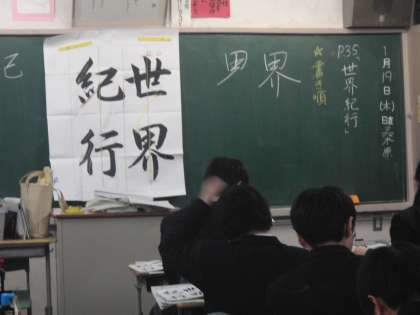 1月19日(木)日直
P35「世界紀行」
☆書き順
界
世界
紀行
己